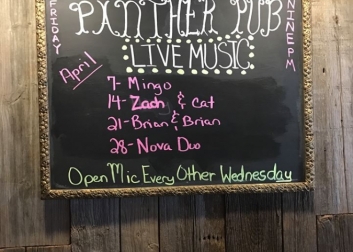 PANTHER PUB
FRIDAY
NINE PM
LIVE MUSIC
April
7- Mingo
14- Zach & Cat
21- Brian & Brian
28- Nova Duo
Open Mic Every Other Wednesday